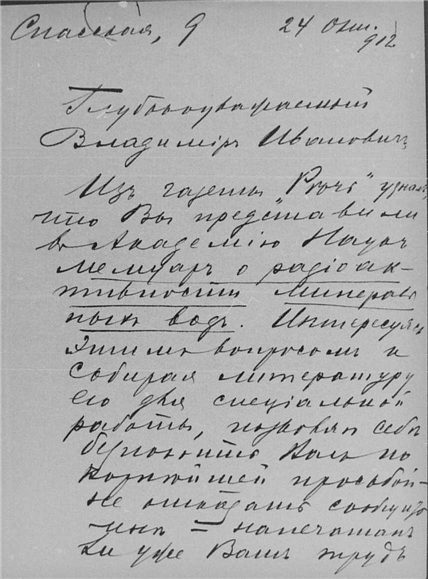 Спасская, 9 24 Окт.
912
Глубокоуважаемый
Владимiръ Ивановичъ
Изъ газеты "Рѣчь" узналъ,
что Вы представили
въ Академiю Наукъ
мемуаръ о радiоак-
тивности минераль-
ныхъ водъ. Интересуясь
этимъ вопросомъ и
собирая литературу
его для спецiальной
работы, позволяю себѣ
безпокоить Васъ по
корнѣйшей просьбой -
не отказать сообщить
мнѣ = напечатанъ
ли уже Вашъ трудъ